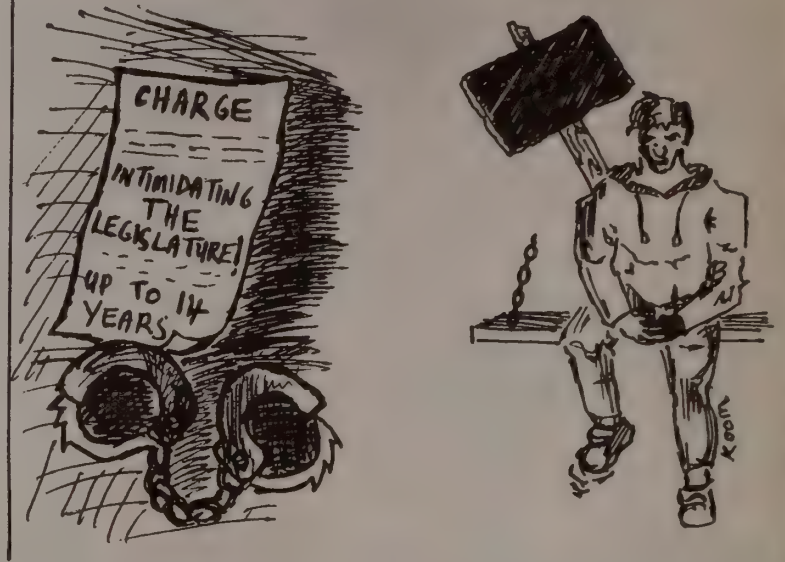 CHARGE
INTIMIDATING
THE
LEGISLATURE!
UP TO 14
YEARS